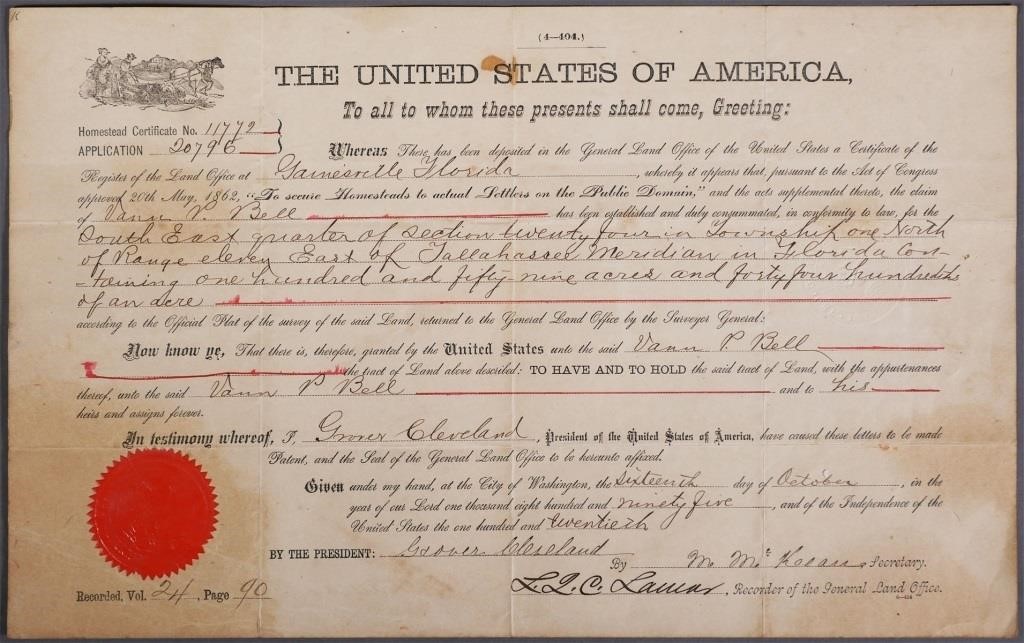 K
(4—404.)
THE UNITED STATES OF AMERICA,
To all to whom these presents shall come, Greeting:
Homestead Certificate No. 11772
APPLICATION 20796
Whereas There has been deposited in the General Land Office of the United States a Certificate of the
Register of the Land Office at Gainesville Florida, whereby it appears that, pursuant to the Act of Congress
approved 20th May, 1862, "To secure Homesteads to actual Settlers on the Public Domain," and the acts supplemental thereto, the claim
of Vann P. Bell has been established and duly consummated, in conformity to law, for the
South East quarter of Section twenty four in Township one North
of Range eleven East of Tallahassee Meridian in Florida Con-
-taining one hundred and fifty-nine acres and forty four hundredths
of an acre
according to the Official Plat of the survey of the said Land, returned to the General Land Office by the Surveyor General:
Now know ye, That there is, therefore, granted by the United States unto the said Vann P. Bell
the tract of Land above described: TO HAVE AND TO HOLD the said tract of Land, with the appurtenances
thereof, unto the said Vann P Bell and to his
heirs and assigns forever.
In testimony whereof, I, Grover Cleveland, President of the United States of America, have caused these letters to be made
Patent, and the Seal of the General Land Office to be hereunto affixed.
Given under my hand, at the City of Washington, the Sixteenth day of October, in the
year of our Lord one thousand eight hundred and ninety five, and of the Independence of the
United States the one hundred and twentieth
BY THE PRESIDENT: Grover Cleveland
By M. McKean, Secretary.
L. Q. C. Lamar, Recorder of the General Land Office.
Recorded, Vol. 24, Page 90